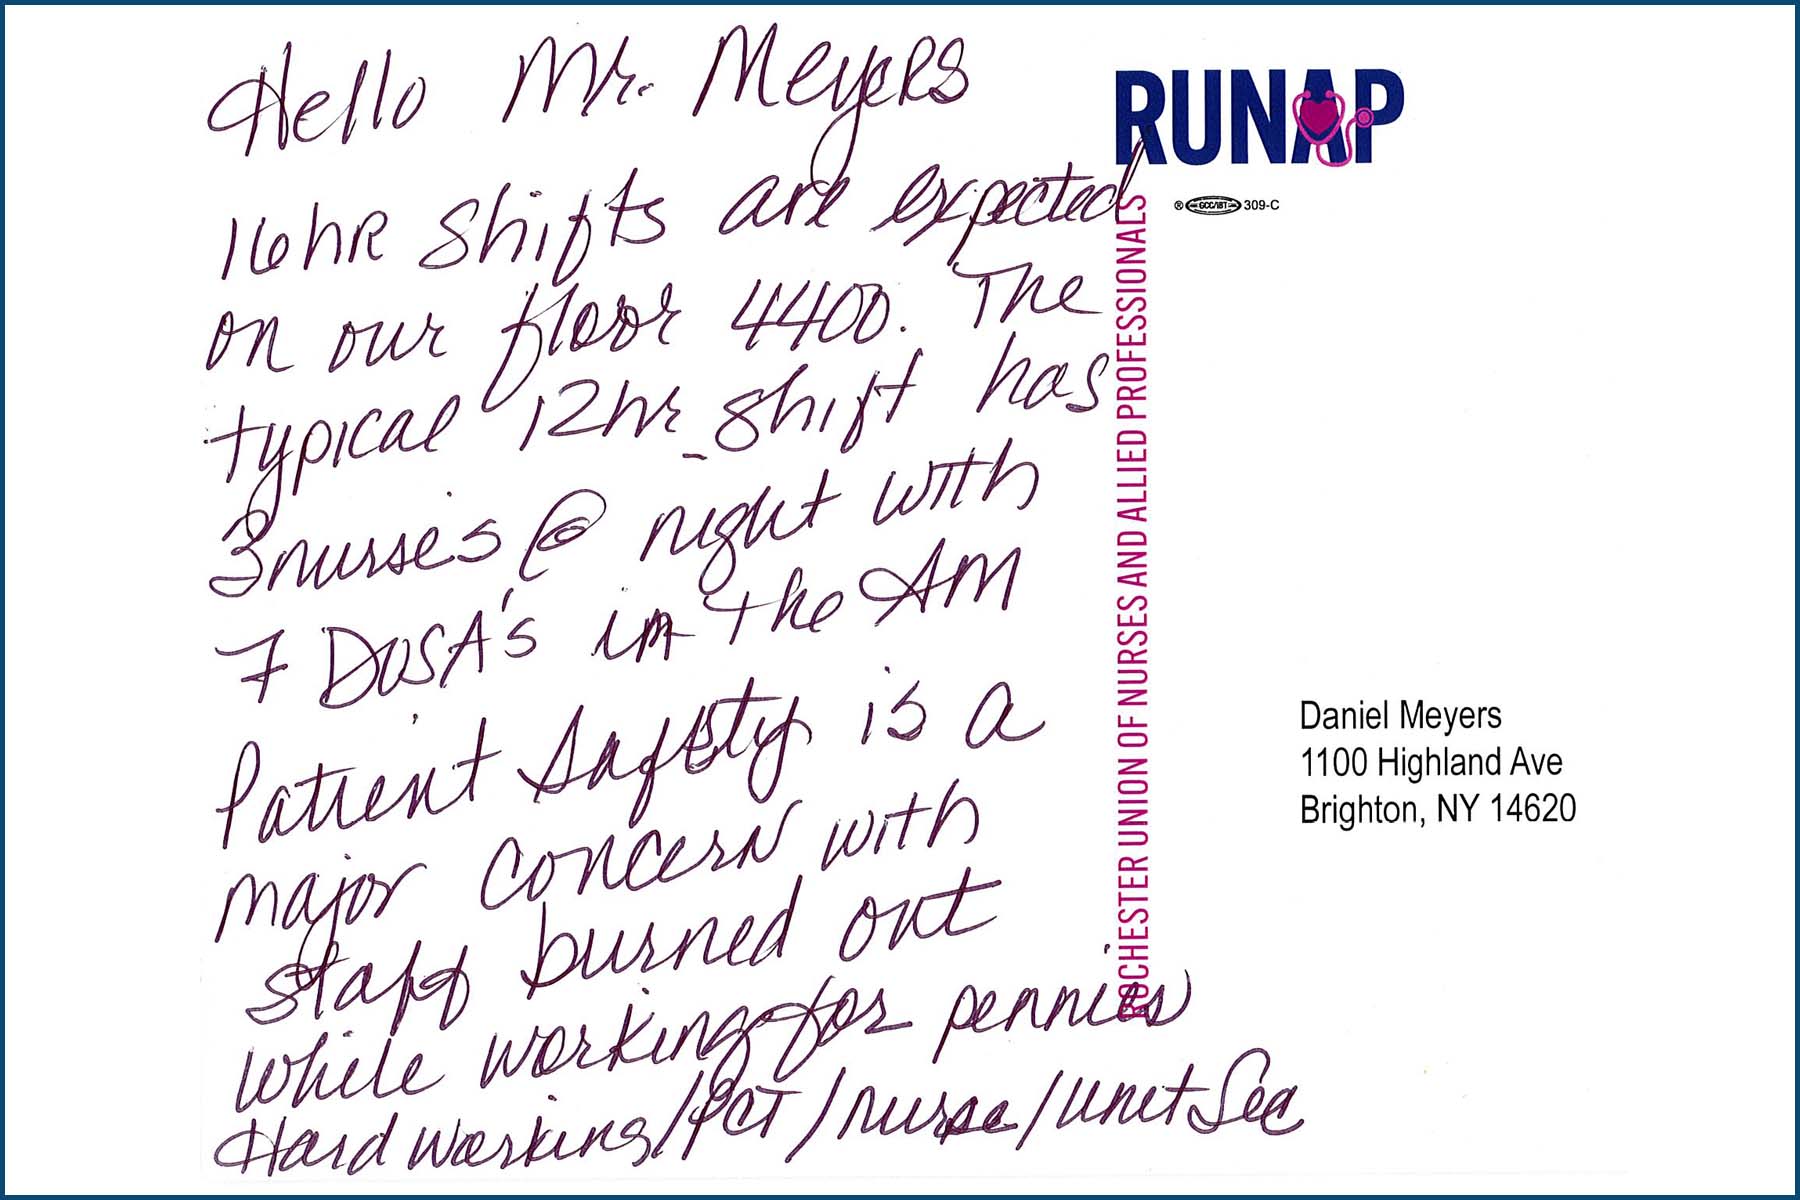 Hello Mr. Meyers
16hr shifts are expected
on our floor 4400. The
typical 12hr shift has
3 nurses @ night with
7 DOSA's in the AM
Patient Safety is a
major concern with
staff burned out
while working for pennies
Hard working/PCT/nurse/Unit Sec
RUNAP
® GCC/IBT 309-C
ROCHESTER UNION OF NURSES AND ALLIED PROFESSIONALS
Daniel Meyers
1100 Highland Ave
Brighton, NY 14620